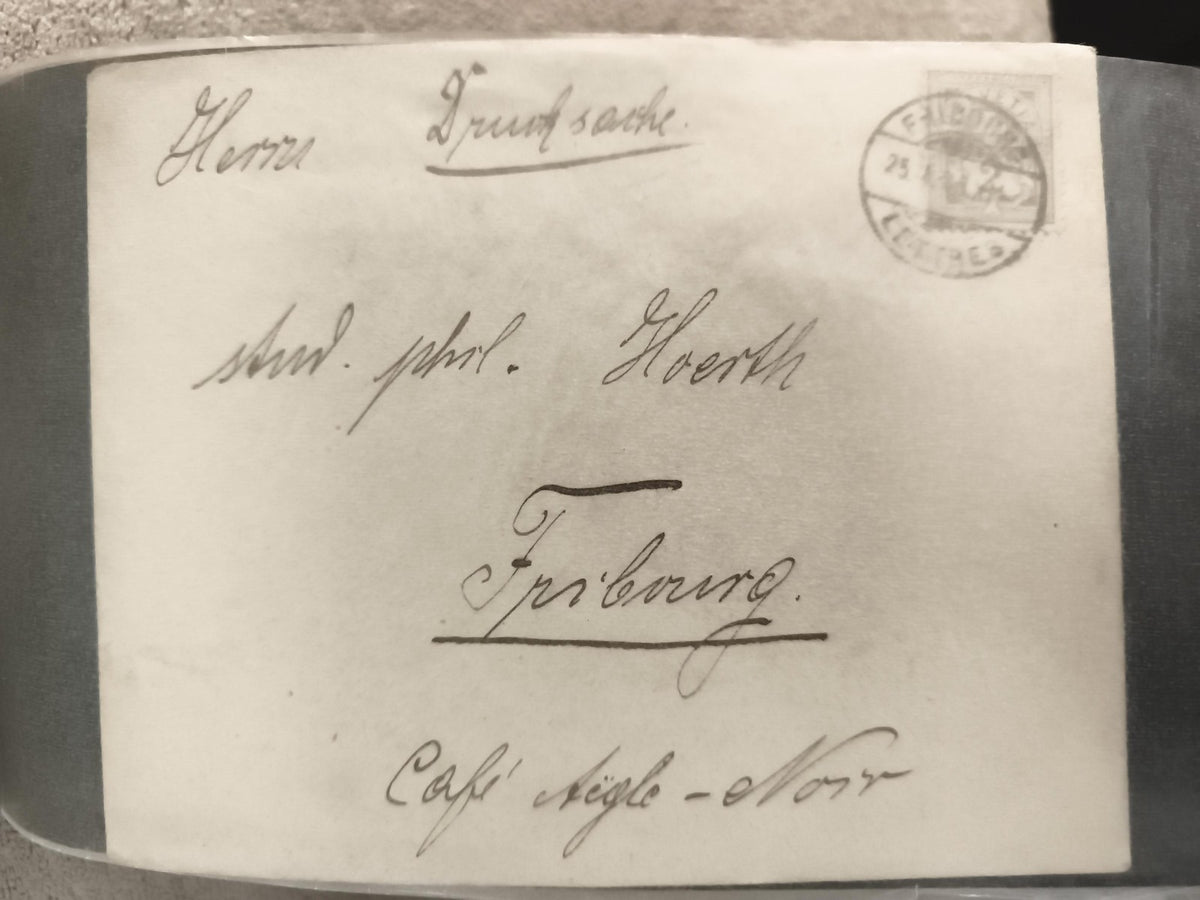 Herrn Drucksache.
FRIBOURG
25.
LETTRES
stud. phil. Hoerth
Fribourg.
Café Aigle-Noir